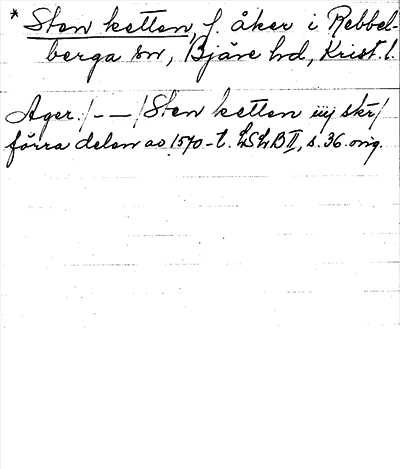 * Sten ketten, f. åker i Rebbel-
berga sn, Bjäre hd, Krist. l.
Ager. /– –/ Sten ketten iiij skr/
förra delen av 1570-t. LSLB II, s. 36. orig.